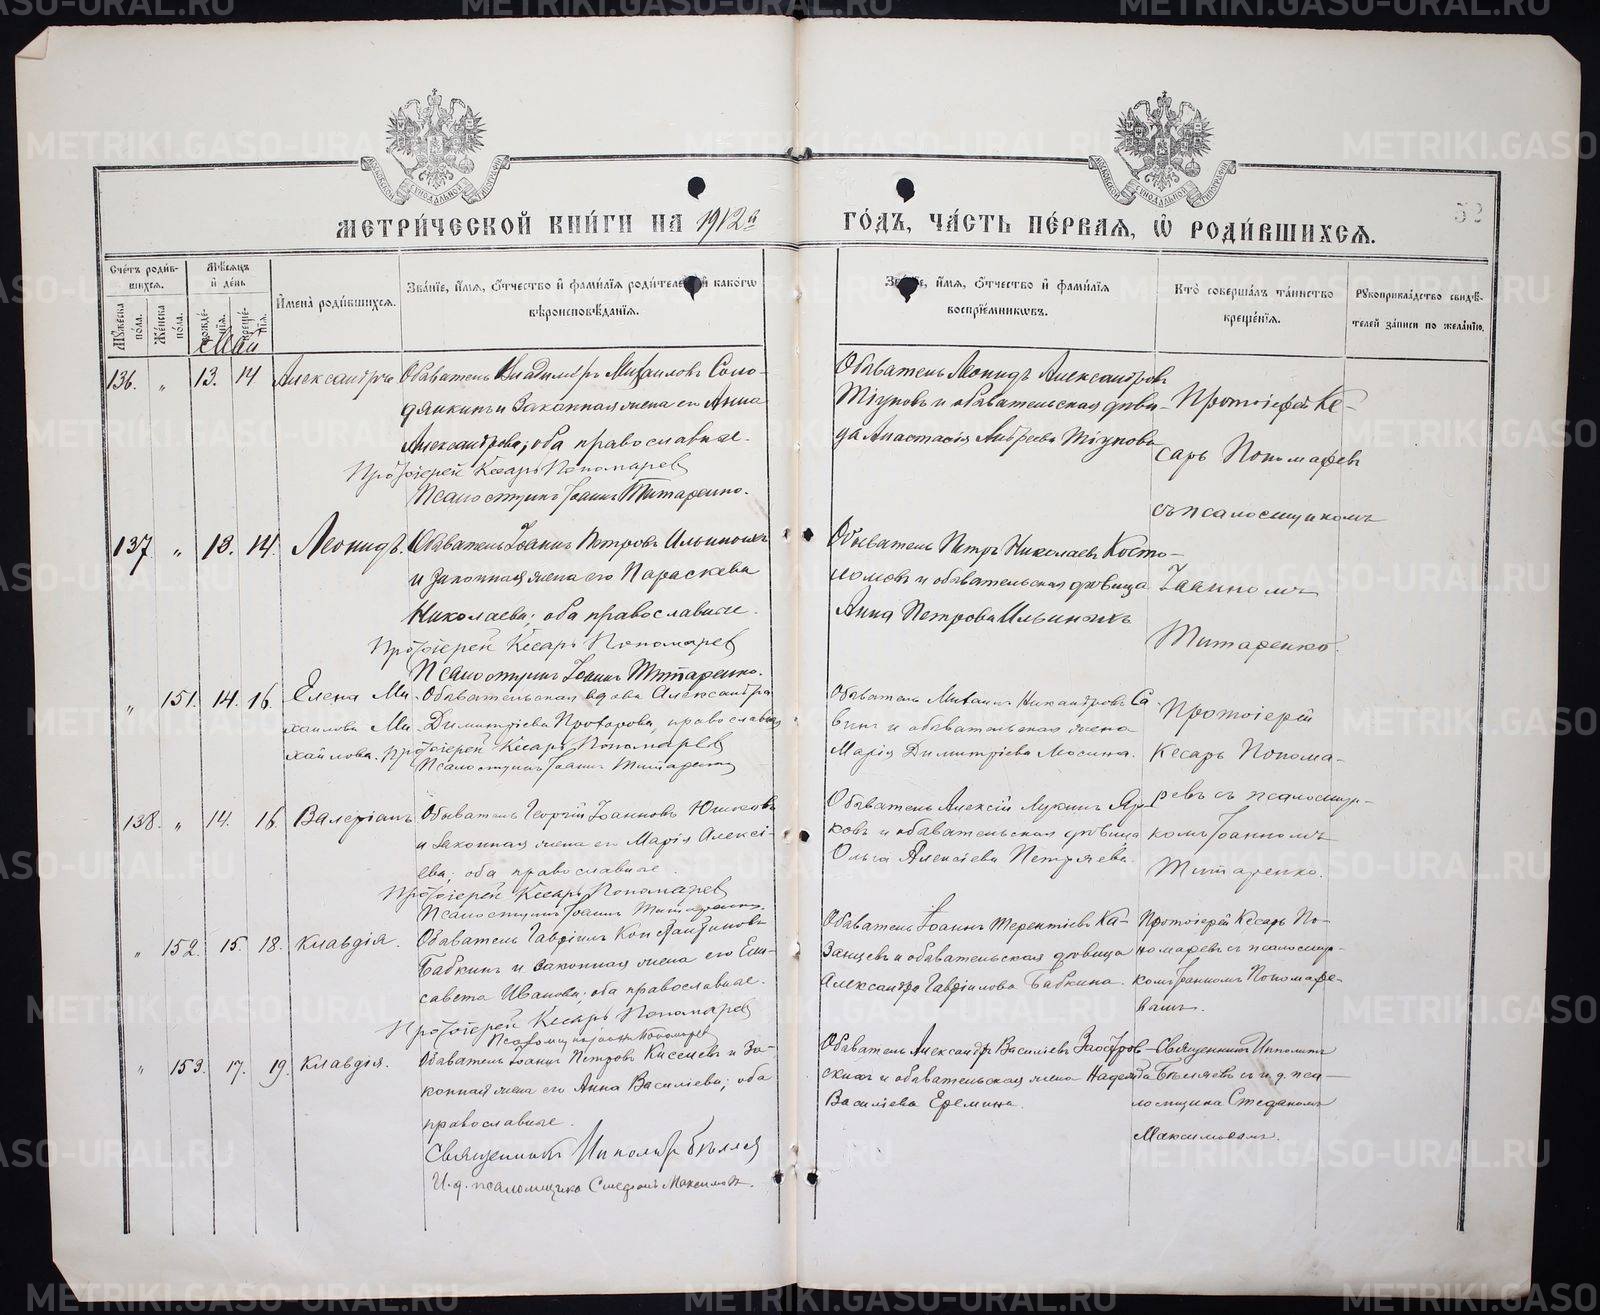 МЕТРИ́ЧЕСКОЙ КНИ́ГИ НА 1912й
ГО́ДЪ, ЧА́СТЬ ПЕ́РВАЯ, Ѡ РОДИ́ВШИХСЯ.
52
Сче́тъ роди́в-
шихся.
Му́жеска
по́ла.
Же́нска
по́ла.
Мѣ́сяцъ
и́ день
рожде́-
нїя.
креще́-
нїя.
Май
И́мена̀ роди́вшихся.
Зва́нїе, и́мя, о́тчество и́ фами́лїя роди́телей, и́ како́гѡ
вѣроисповѣ́данїя.
Зва́нїе, и́мя, о́тчество и́ фами́лїя
воспрїе́мникѡвъ.
Кто̀ соверша́лъ та́инство
креще́нїя.
Рукоприкла́дство свидѣ́-
телей за́писи по жела́нїю.
136. „ 13. 14 Александръ
Обыватель Владимiръ Михаиловъ Соло-
дянкинъ и законная жена его Анна
Александрова; оба православные.
Протоiерей Кесарь Пономарев
Псаломщикъ Iоаннъ Титаренко.
Обыватель Леонидъ Александровъ
Тiуновъ и обывательская дѣви-
ца Анастасiя Андреева Тiунова
Протоiерей Ке-
сарь Пономаревъ
съ псаломщикомъ
137. „ 13. 14. Леонидъ.
Обыватель Iоаннъ Петровъ Ильиныхъ
и законная жена его Параскева
Николаева; оба православные.
Протоiерей Кесарь Пономарев
Псаломщикъ Iоаннъ Титаренко.
Обыватель Петръ Николаевъ Косто-
ломовъ и обывательская дѣвица
Анна Петрова Ильиныхъ
Iоанномъ
Титаренко.
„ 151. 14. 16. Елена Ми-
хаилова Ми-
хайлова.
Обывательская вдова Александра
Димитрiева Прозорова, православная
Протоiерей Кесарь Пономарев
Псаломщикъ Iоаннъ Титаренко
Обыватель Михаилъ Никандровъ Са-
винъ и обывательская жена
Марiя Димитрiева Мосина.
Протоiерей
Кесарь Понома-
ревъ съ псаломщи-
комъ Iоанномъ
Титаренко.
138. „ 14. 16. Валерiанъ
Обыватель Георгiй Iоанновъ Юшковъ
и законная жена его Марiя Алексi-
ева; оба православные.
Протоiерей Кесарь Пономарев
Псаломщикъ Iоаннъ Титаренко.
Обыватель Алексiй Лукинъ Яр-
ковъ и обывательская дѣвица
Ольга Алексiева Петряева.
„ 152. 15. 18. Клавдiя.
Обыватель Гаврiилъ Константиновъ
Бабкинъ и законная жена его Ели-
савета Иванова; оба православные.
Протоiерей Кесарь Пономарев
Псаломщикъ Iоаннъ Пономарев
Обыватель Iоаннъ Терентiевъ Ка-
занцевъ и обывательская дѣвица
Александра Гаврiилова Бабкина.
Протоiерей Кесарь По-
номаревъ съ псаломщи-
комъ Iоанномъ Пономаре-
вымъ.
„ 153. 17. 19. Клавдiя.
Обыватель Iоаннъ Петровъ Киселевъ и за-
конная жена его Анна Василiева; оба
православные.
Священникъ Ипполитъ Бѣляев
И.д. псаломщика Стефанъ Максимов.
Обыватель Александръ Василiевъ Заостров-
скихъ и обывательская жена Надежда
Василiева Еремина.
Священникъ Ипполитъ
Бѣляевъ съ и.д. пса-
ломщика Стефаномъ
Максимовымъ.
METRIKI.GASO-URAL.RU